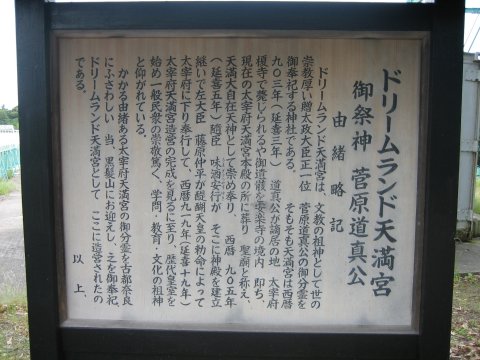 ドリームランド天満宮
御祭神 菅原道真公
由緒略記
ドリームランド天満宮は、文教の祖神として世の
崇教厚い贈太政大臣正一位 菅原道真公の御分霊を
御奉祀する神社である。 そもそも天満宮は西暦
九〇三年(延喜三年) 道真公が謫居の地 太宰府
榎寺で薨じられるや御遺骸を安楽寺の境内 即ち、
現在の太宰府天満宮本殿の所に葬り 聖廟と称え、
天満大自在天神として崇め奉り、 西暦 九〇五年
(延喜五年) 随臣 味酒安行が そこに神殿を建立
継いで左大臣 藤原仲平が醍醐天皇の勅命によって
太宰府に下り奉行して、西暦九一九年(延喜十九年)
太宰府天満宮造営の完成を見るに至り、歴代皇室を
始め一般民衆の崇敬篤く、学問・教育・文化の祖神
と仰がれている。
かかる由緒ある太宰府天満宮の御分霊を古都奈良
にふさわしい 当、黒髪山にお迎えし 之を御奉祀、
ドリームランド天満宮として ここに造営されたの
である。
以上、